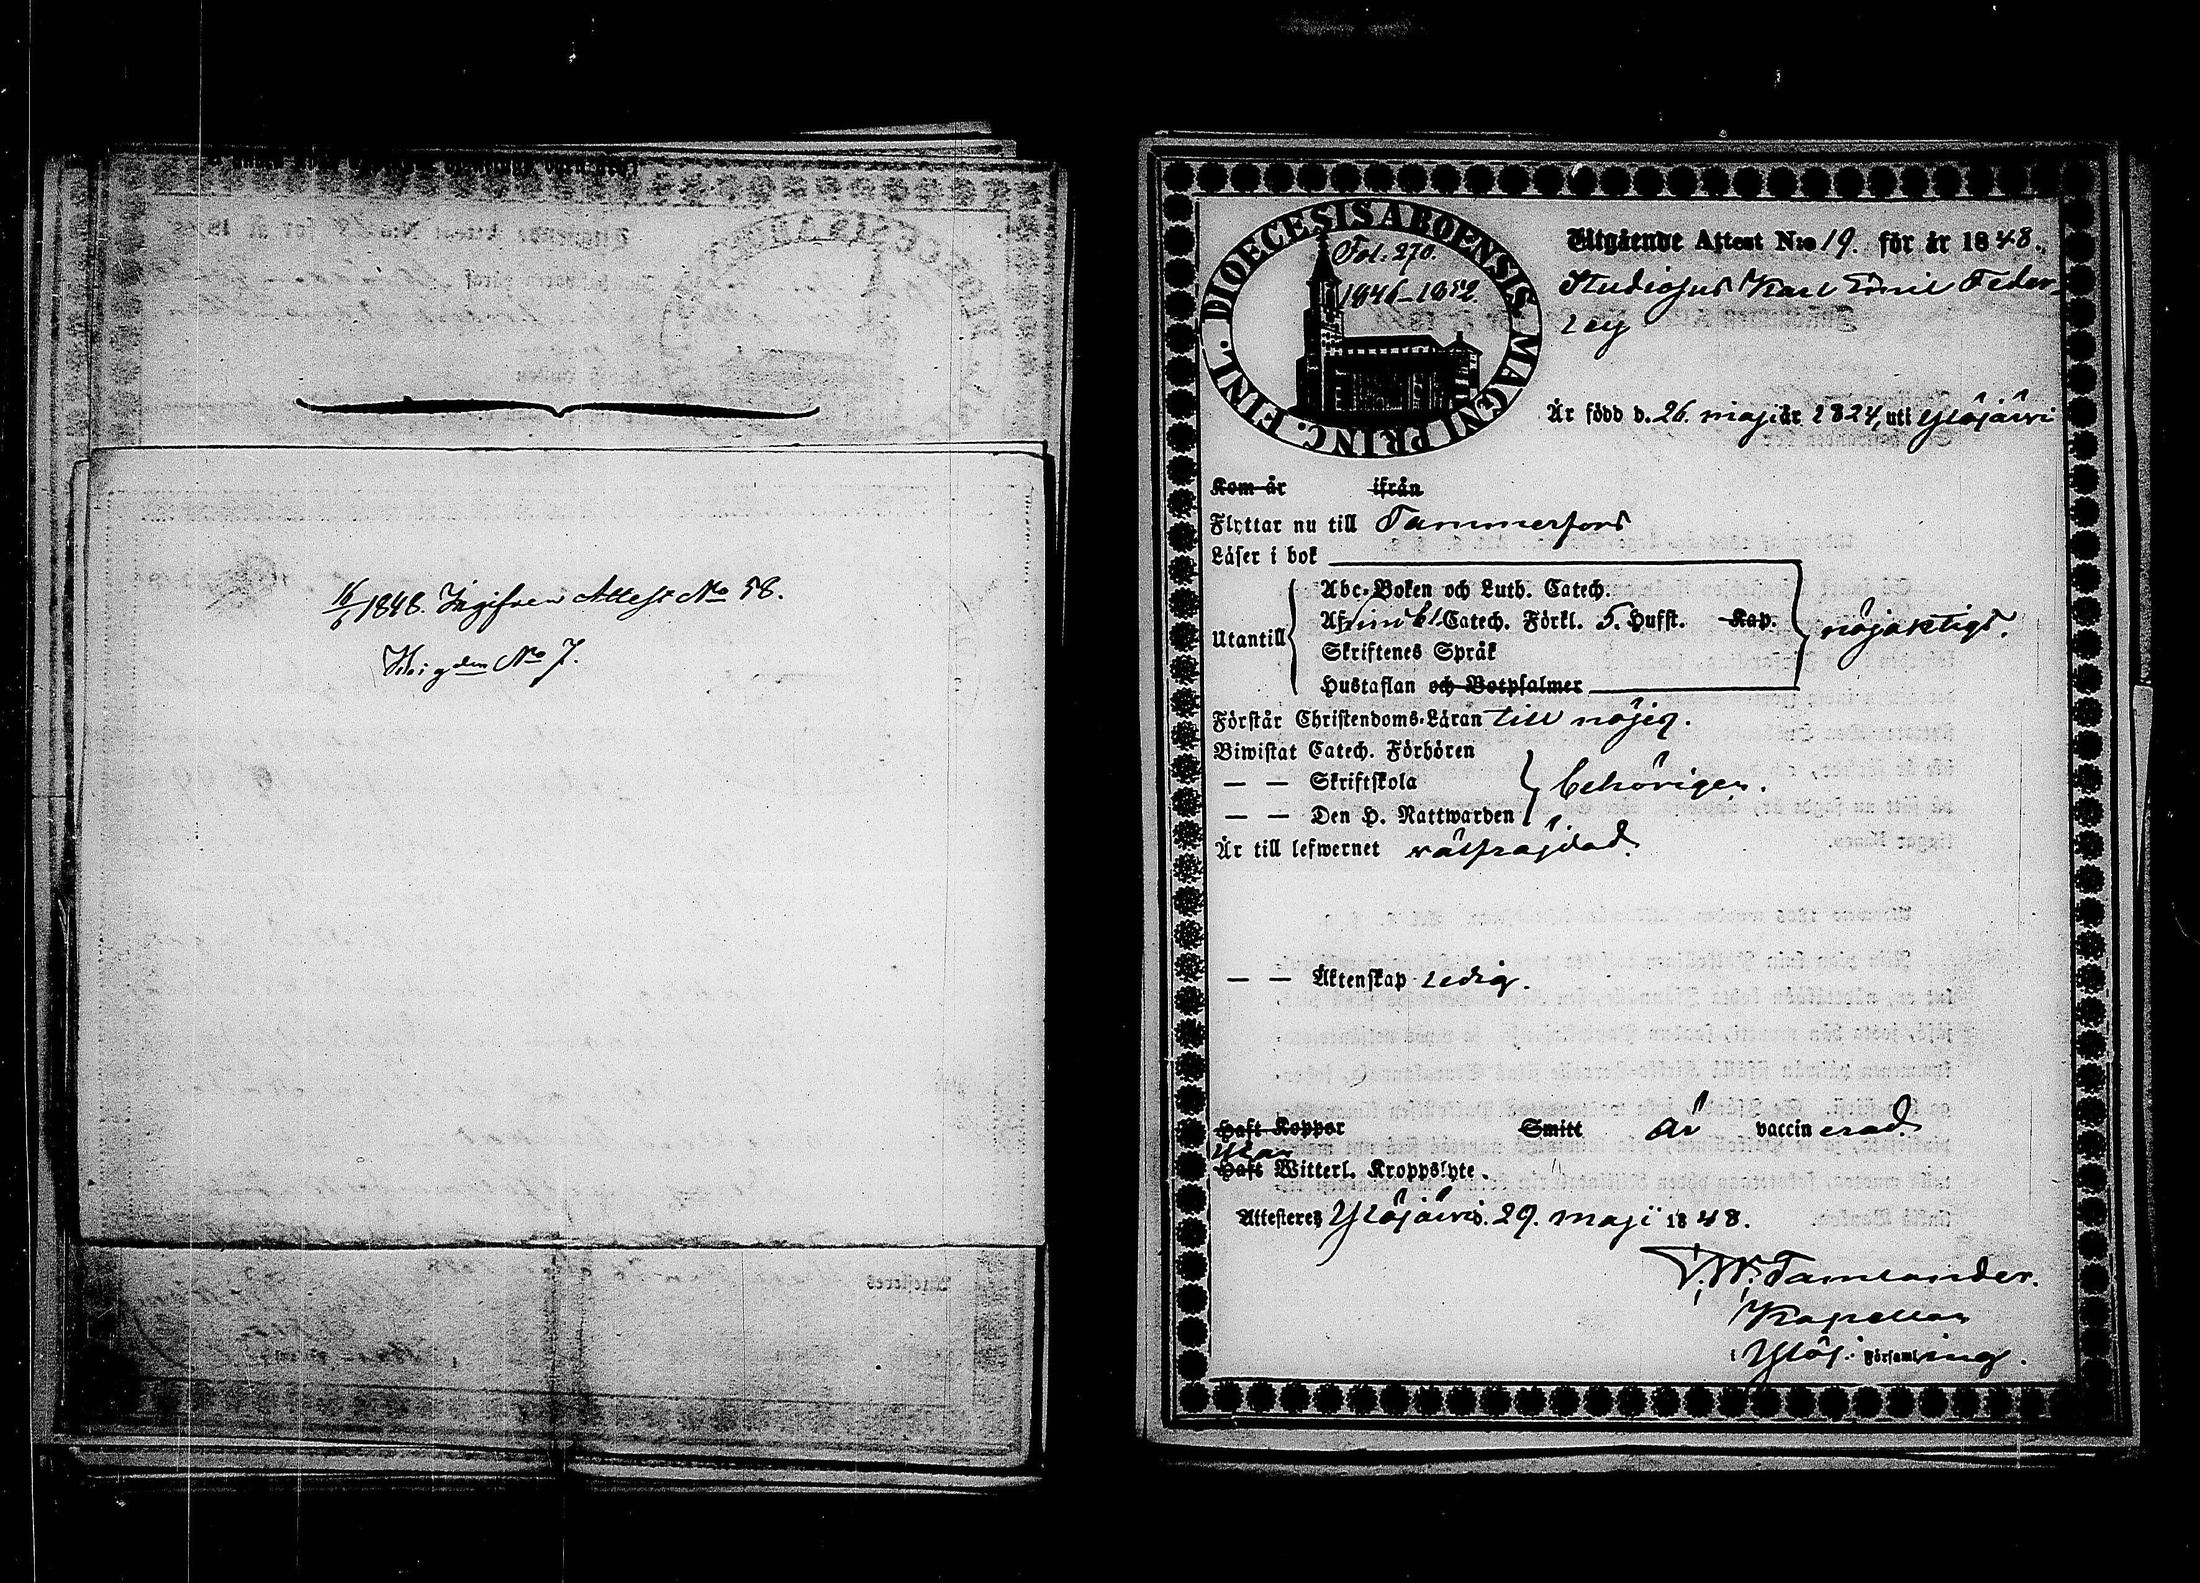 16/6 1848. Ingifven Attest No 58.
No 7.
DIOECESIS ABOENSIS MAGNI PRINC. FINL.
Fol. 270.
1846-1852.
Utgående Attest N:o 19. för år 1848.
Studiosus Karl Emil Feder-
ley
Är född d. 26. maji år 1824, uti Ylöjärvi
Kom år ifrån
Flyttar nu till Tammerfors
Läser i bok
Utantill
Abc-Boken och Luth. Catech.
Catech. Förkl. 5. Hufst. Kap.
Skriftenes Språk
Hustaflan och Botpsalmer
nöjaktigt.
Förstår Christendoms-Läran till nöje.
Biwistat Catech. Förhören
— — Skriftskola
— — Den H. Nattwarden
behörigen.
Är till lefwernet välfräjdad.
— — Äktenskap ledig.
Haft Koppor Smitt är vaccinerad.
Utan
Haft Witterl. Kroppslyte.
Attesteres Ylöjärvi d. 29. maji 1848.
Tamlander.
Kapellan
i Ylöj. Församling.